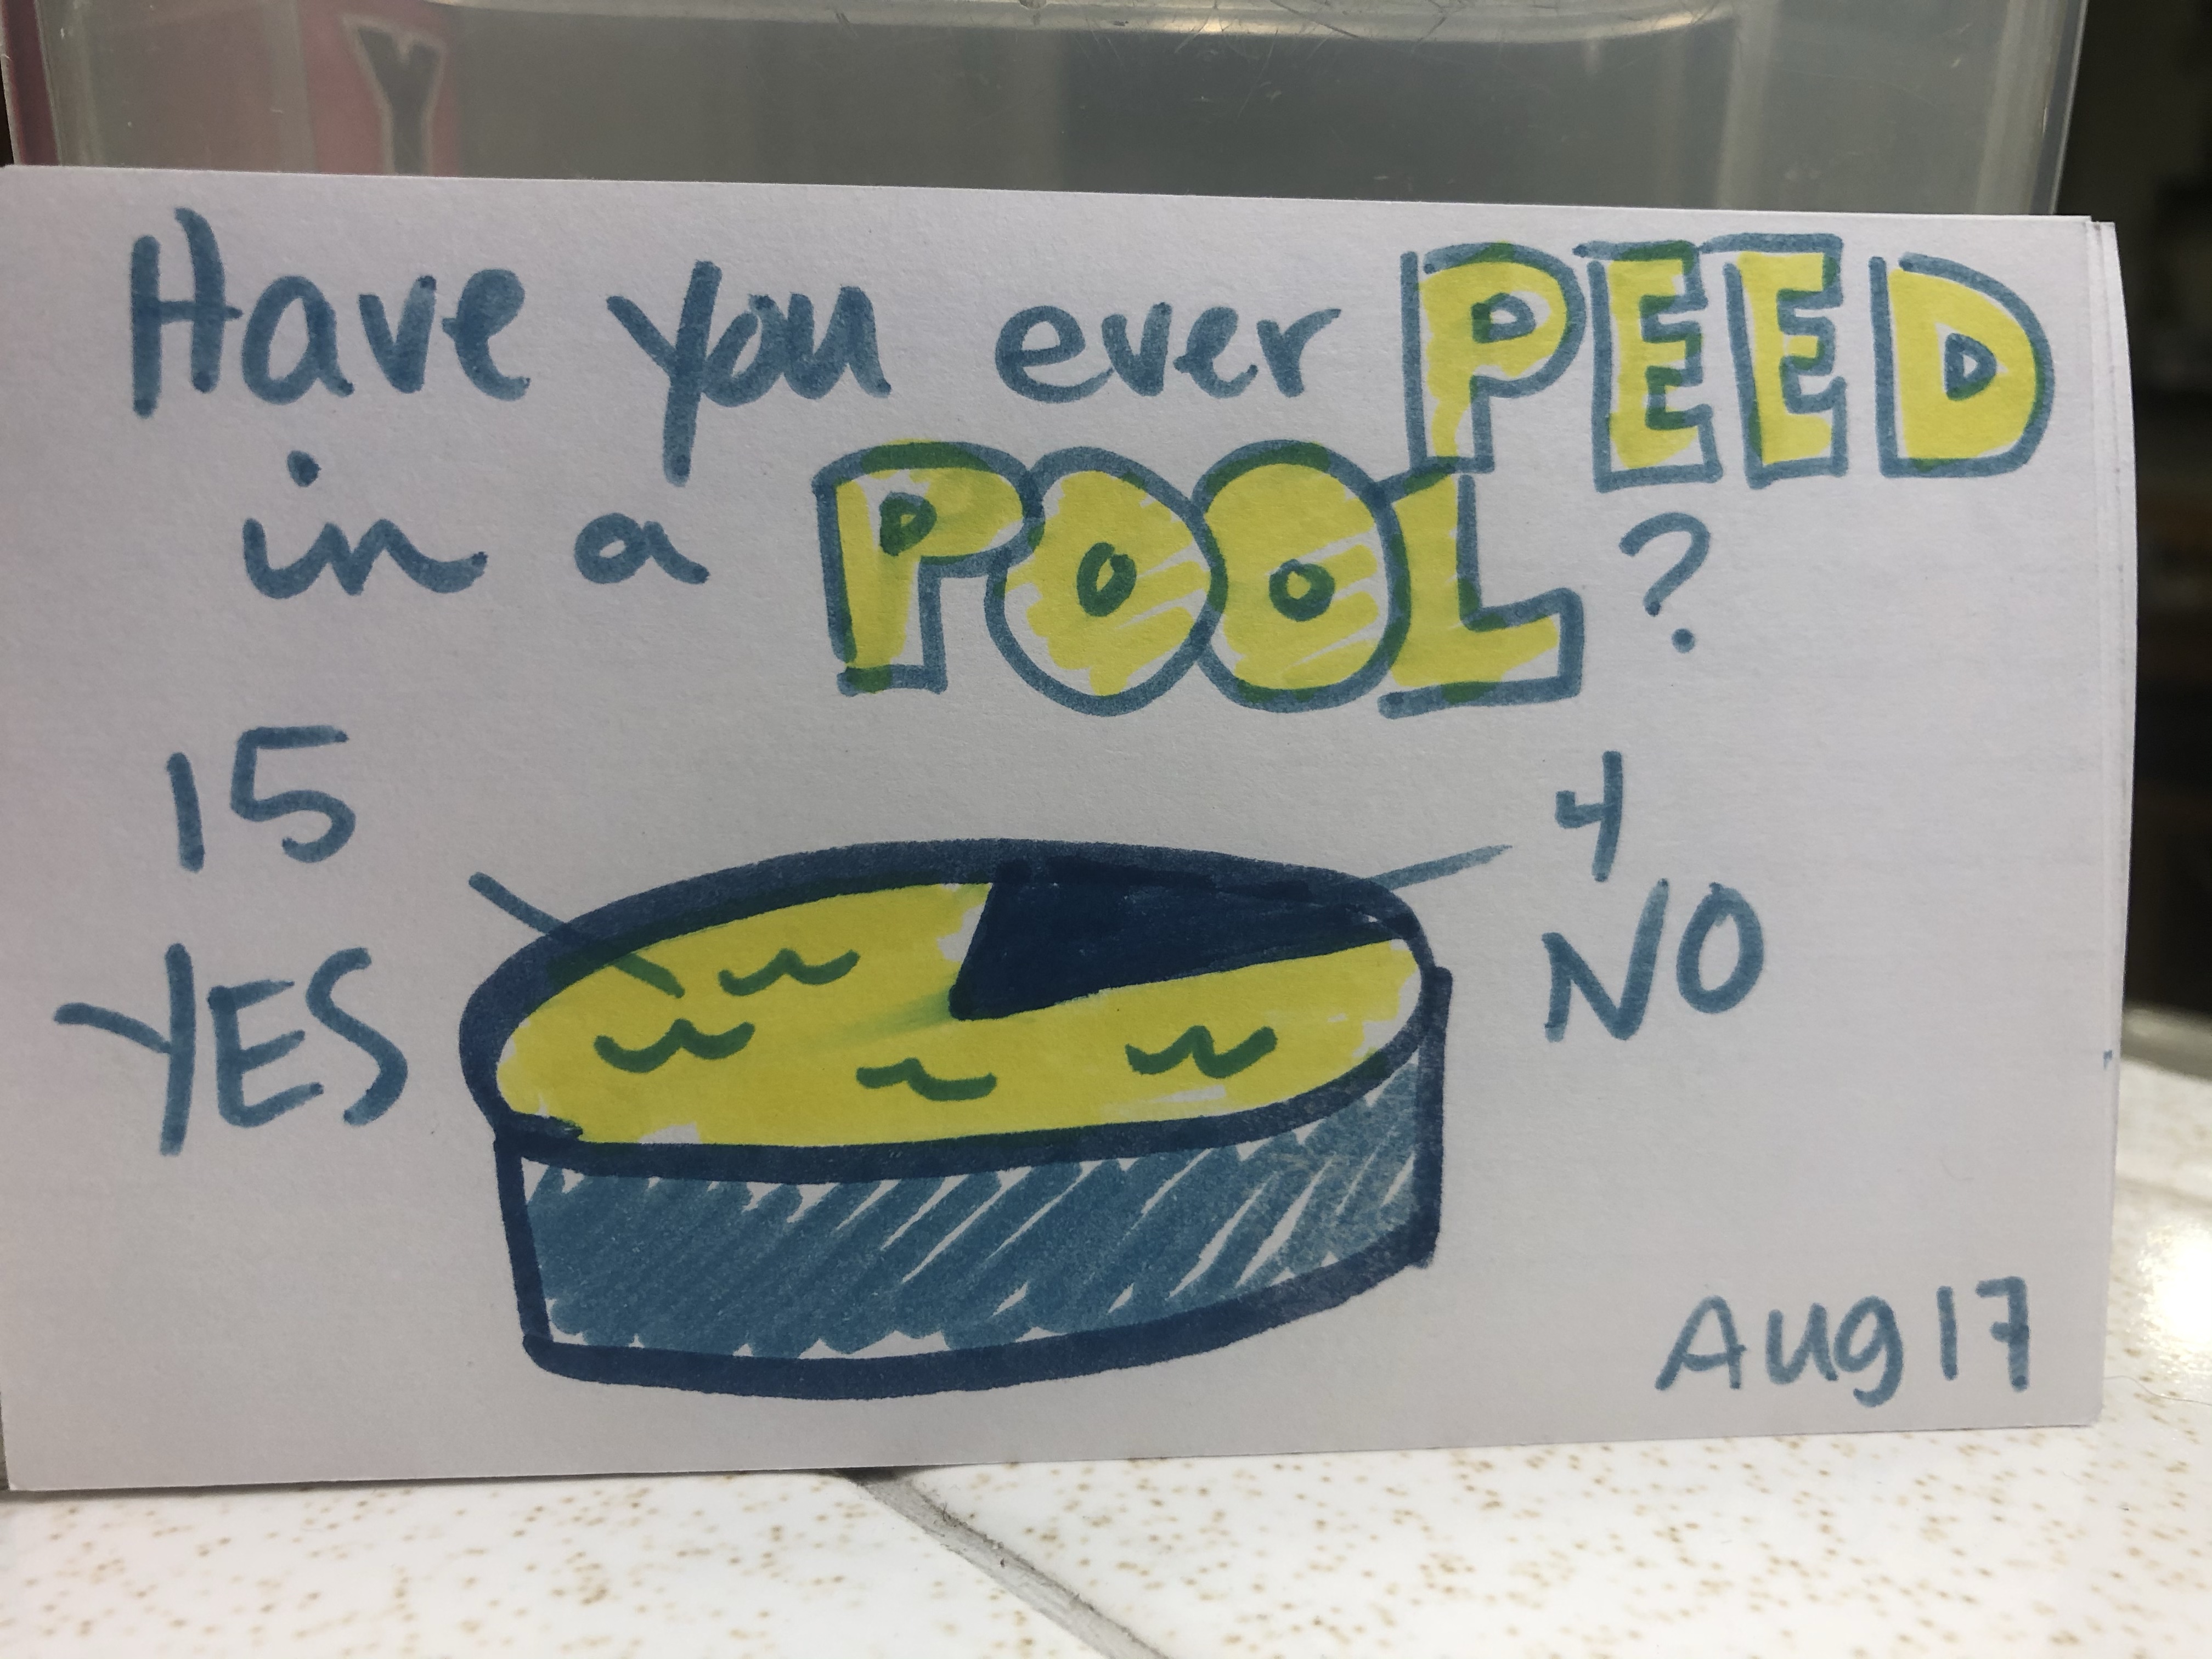 Y
Have you ever PEED
in a POOL?
15
YES
4
NO
Aug 17